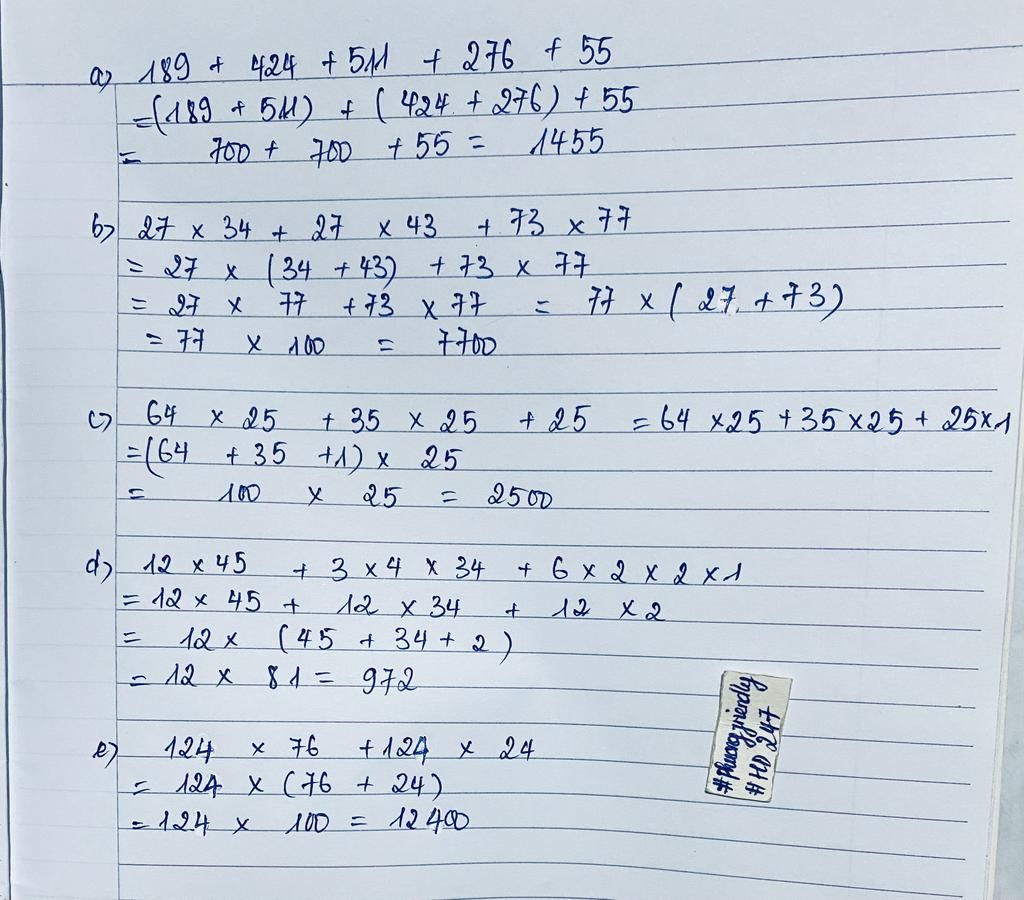 a) 189 + 424 + 511 + 276 + 55
= (189 + 511) + (424 + 276) + 55
= 700 + 700 + 55 = 1455
b) 27 × 34 + 27 × 43 + 73 × 77
= 27 × (34 + 43) + 73 × 77
= 27 × 77 + 73 × 77 = 77 × (27 + 73)
= 77 × 100 = 7700
c) 64 × 25 + 35 × 25 + 25 = 64 × 25 + 35 × 25 + 25 × 1
= (64 + 35 + 1) × 25
= 100 × 25 = 2500
d) 12 × 45 + 3 × 4 × 34 + 6 × 2 × 2 × 1
= 12 × 45 + 12 × 34 + 12 × 2
= 12 × (45 + 34 + 2)
= 12 × 81 = 972
e) 124 × 76 + 124 × 24
= 124 × (76 + 24)
= 124 × 100 = 12400
#phuongfriendly
#HD 247